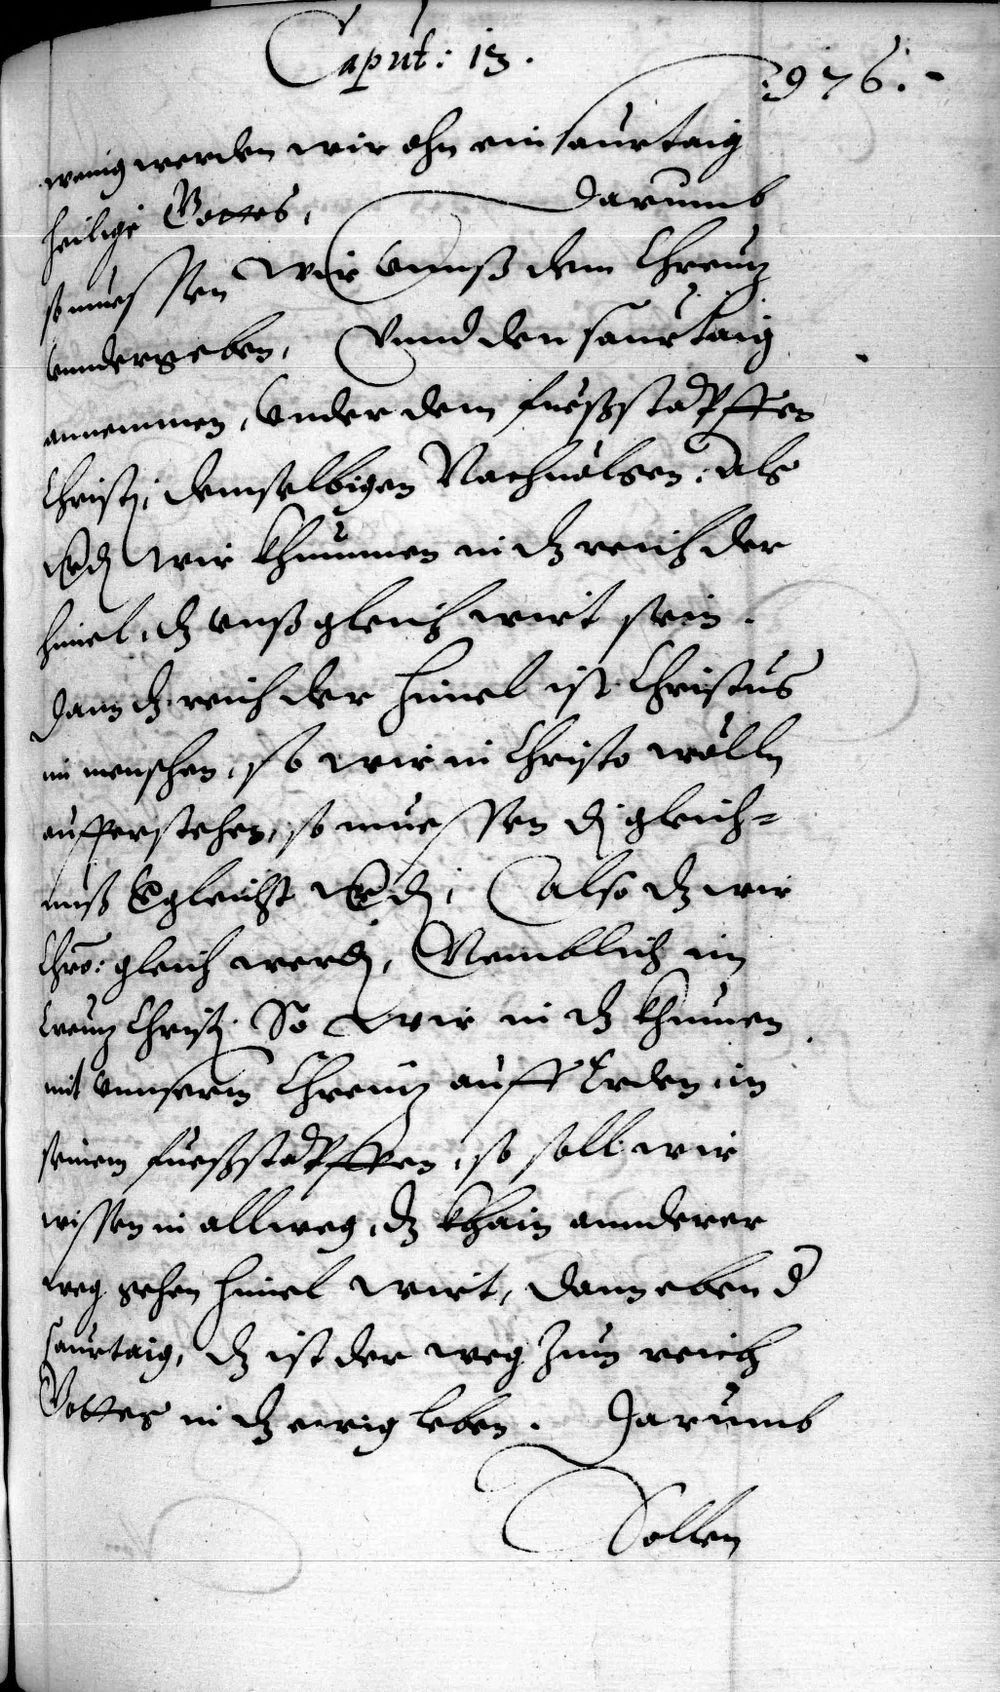 Caput: 13.
976.
wenig werden wir ohn ein saurtaig
heilige Gottes, Darumb
so muessen wir vnnß dem Chreutz
vnndergeben, Vnnd den saurtaig
annemmen, Vnder dem fueßstapffen
Christj, demselbigen Nachuolgen, Als
wir khummen in dz reich der
himel, dz vnß gleich wirt sein.
Dann dz reich der himel ist Christus
im menschen, so wir in Christo wölln
aufferstehen, so muessen dj gleich-
nuß Also dz wir
Chrō: gleich werdn, Nemblich im
Creutz Christj. So wir in dz khumen
mit vnnserm Chreutz auff Erden in
seinem fueßstapffen, so soll wir
wissen in allweg, dz khain annderer
weg gehen himel wirt, dann eben d
saurtaig, dz ist der weg zum reich
Gottes in dz ewig leben. Darumb
Sollen